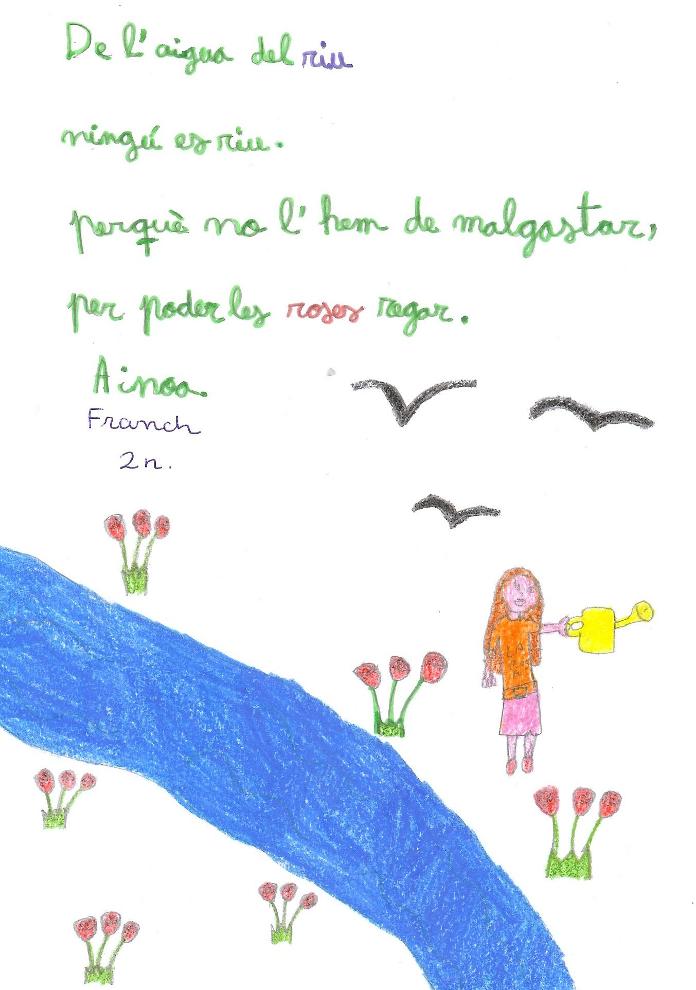 De l'aigua del riu
ningú es riu.
perquè no l'hem de malgastar,
per poder les roses regar.
Ainoa.
Franch
2n.